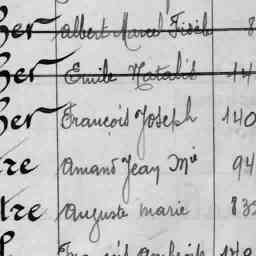 ber Albert Marcel Fidèle 8
ber Emile Natalis 14
ber François Joseph 140
re Amand Jean Mie 94
tre Auguste Marie 835
140